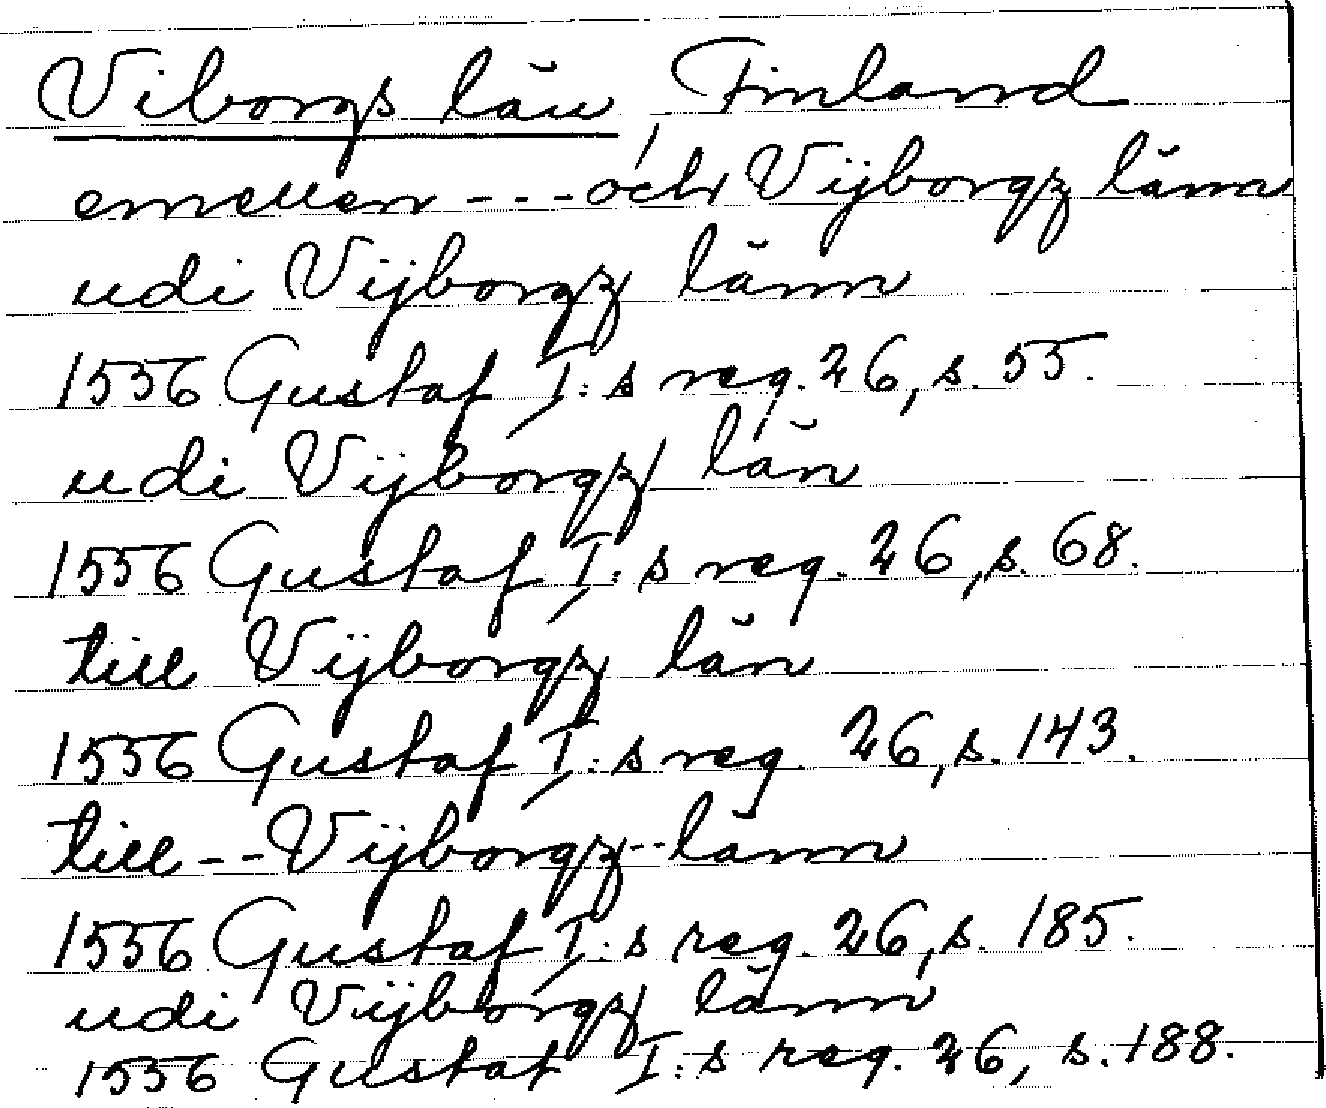 Viborgs län, Finland
emellen --- och Vijborgz länn
udi Vijborgz länn
1556 Gustaf I:s reg. 26, s. 55.
udi Vijborgz län
1556 Gustaf I:s reg. 26, s. 68.
till Vijborgz län
1556 Gustaf I:s reg. 26, s. 143.
till -- Vijborgz -- länn
1556 Gustaf I:s reg. 26, s. 185.
udi Vijborgz länn
1556 Gustaf I:s reg. 26, s. 188.